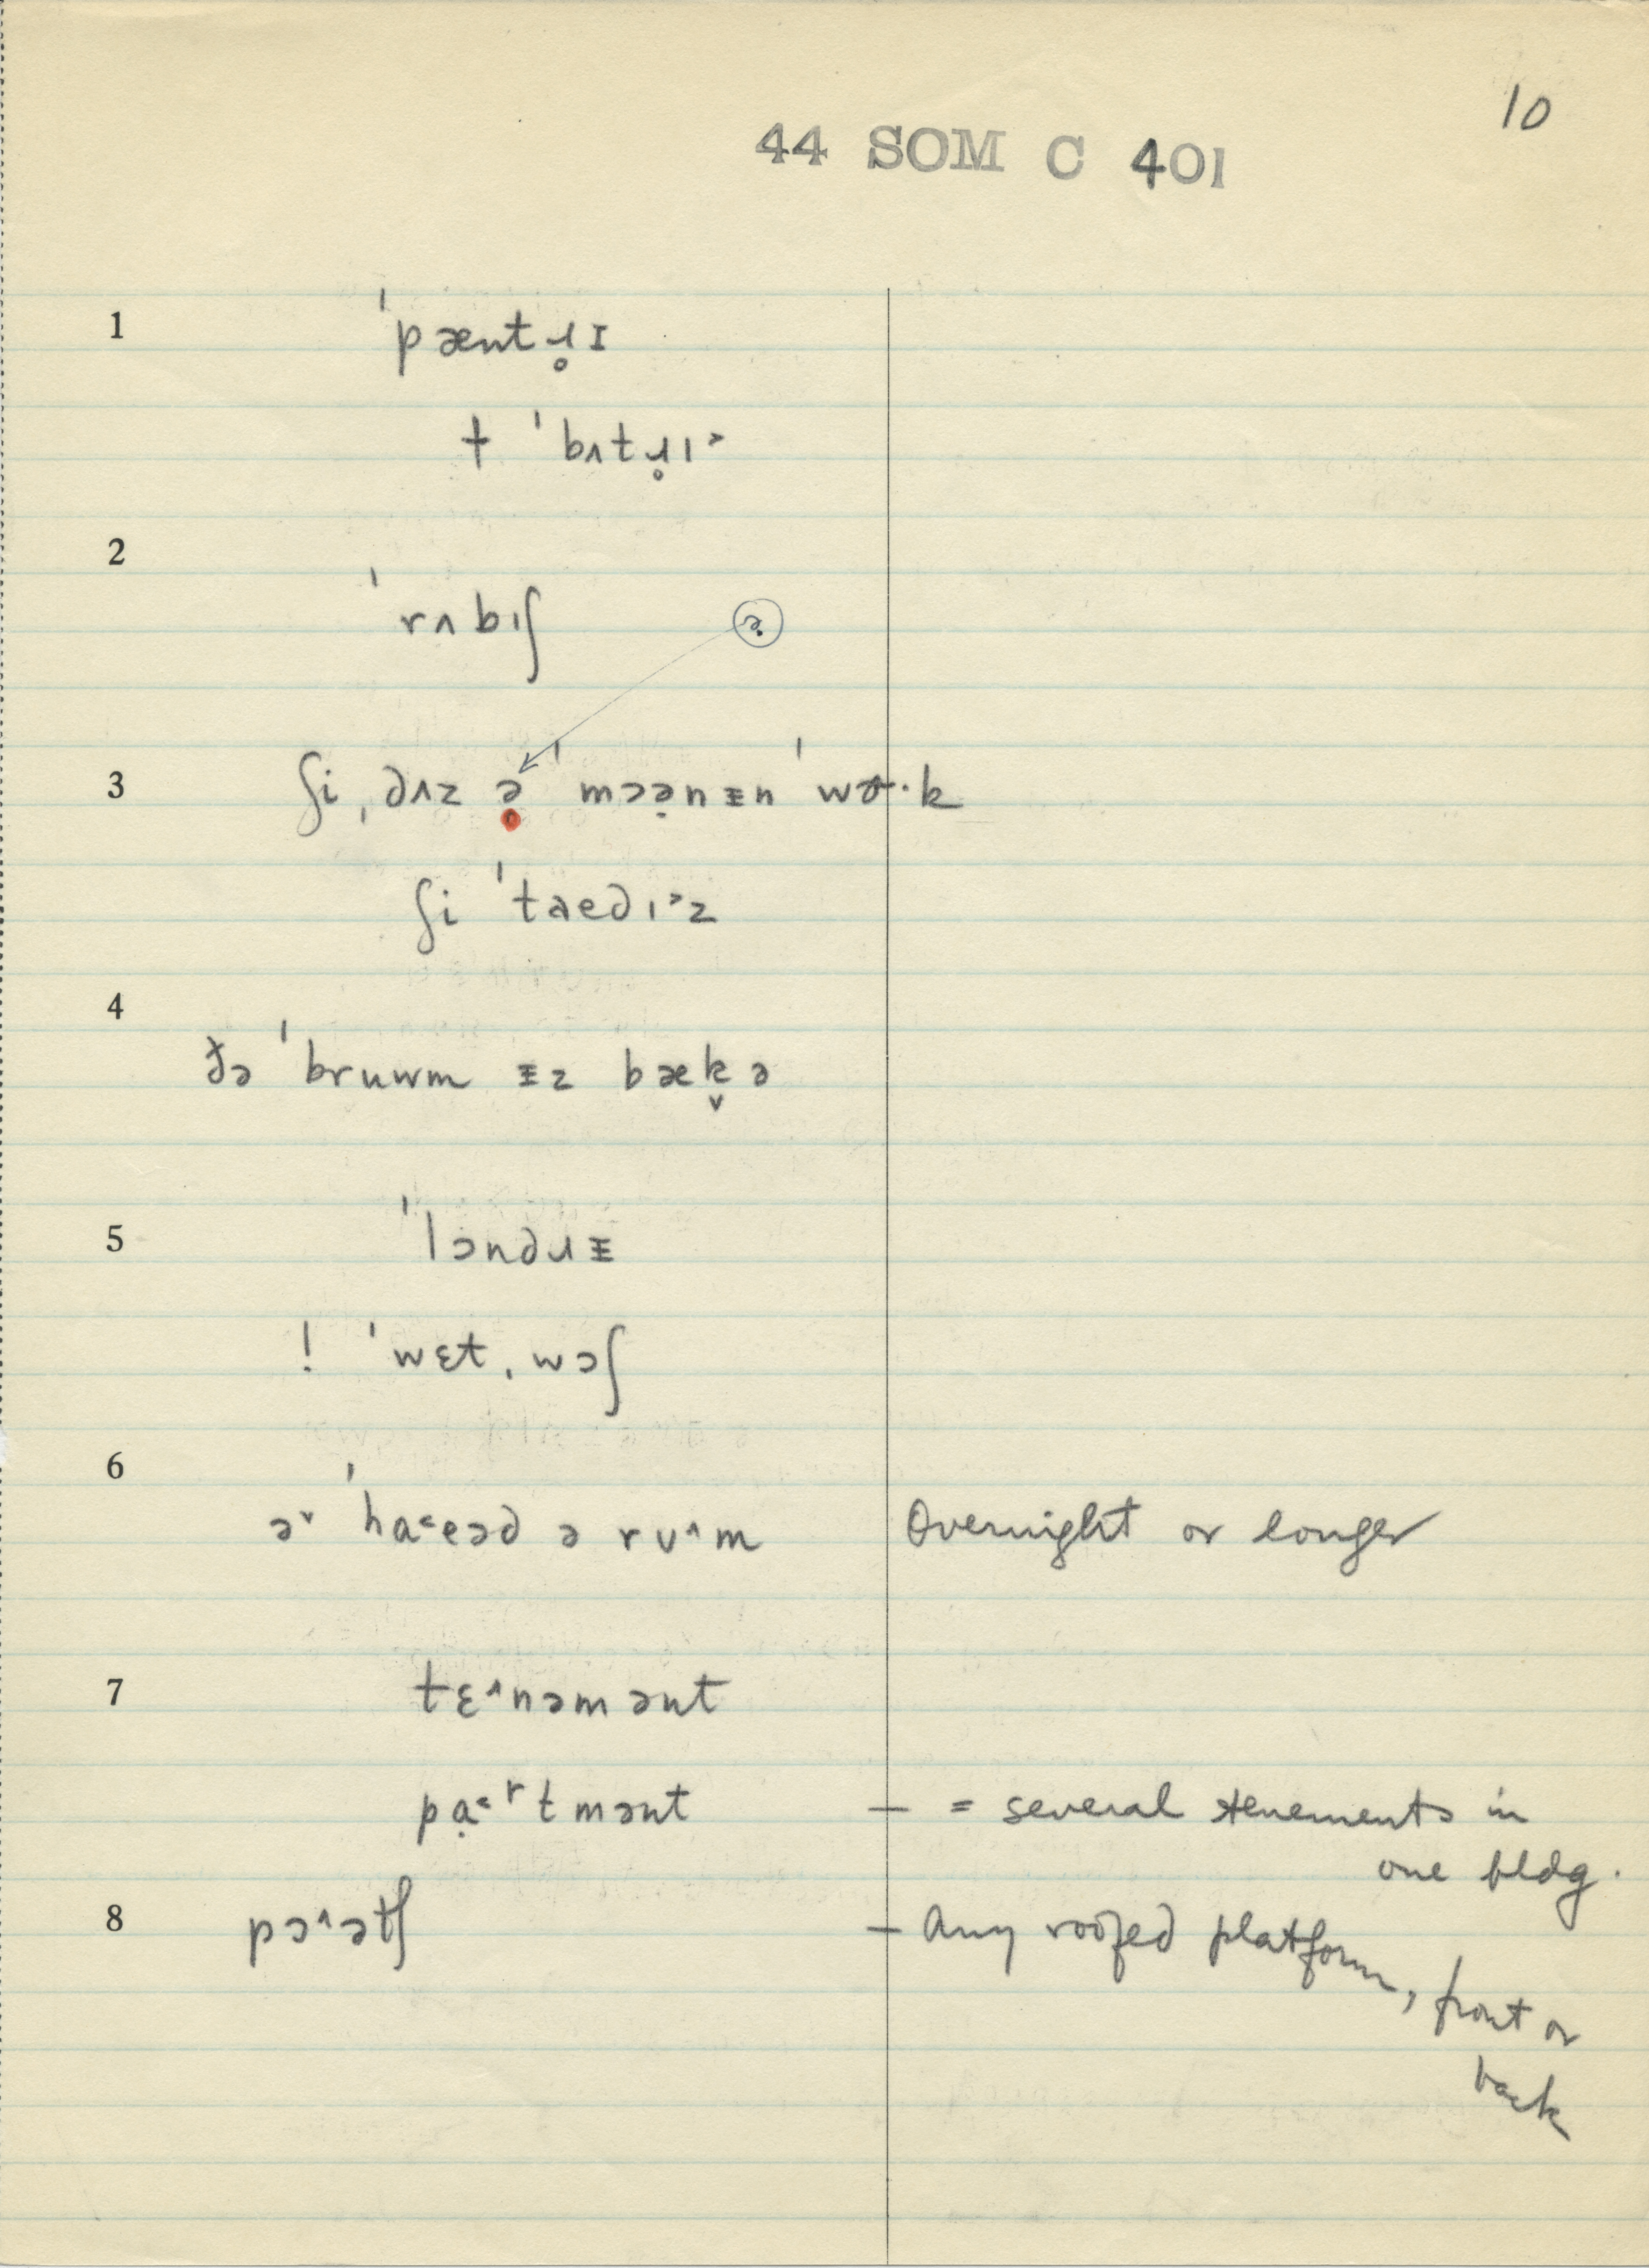 10
44 SOM C 401
1 ˈpæntɹ̥ɪ
† ˈbʌtɹ̥ɪ˃
2
ˈrʌbɪʃ
3 ʃi ˌdʌz ə ˈmɔə̣nᵻn ˈwɚ·k
ʃi ˈtaedɪ˃z
4
ðə ˈbruwm ᵻz bæk̬ ə
5 ˈlɔndɹᵻ
! ˈwɛt ˌwɔʃ
6
ə˅ ˈha˂eəd ə rʊ˄m Overnight or longer
7 tɛ˄nəmənt
pạ˂ʳtmənt – = several tenements in
one bldg.
8 pɔ˄ətʃ – Any roofed platform, front or
back